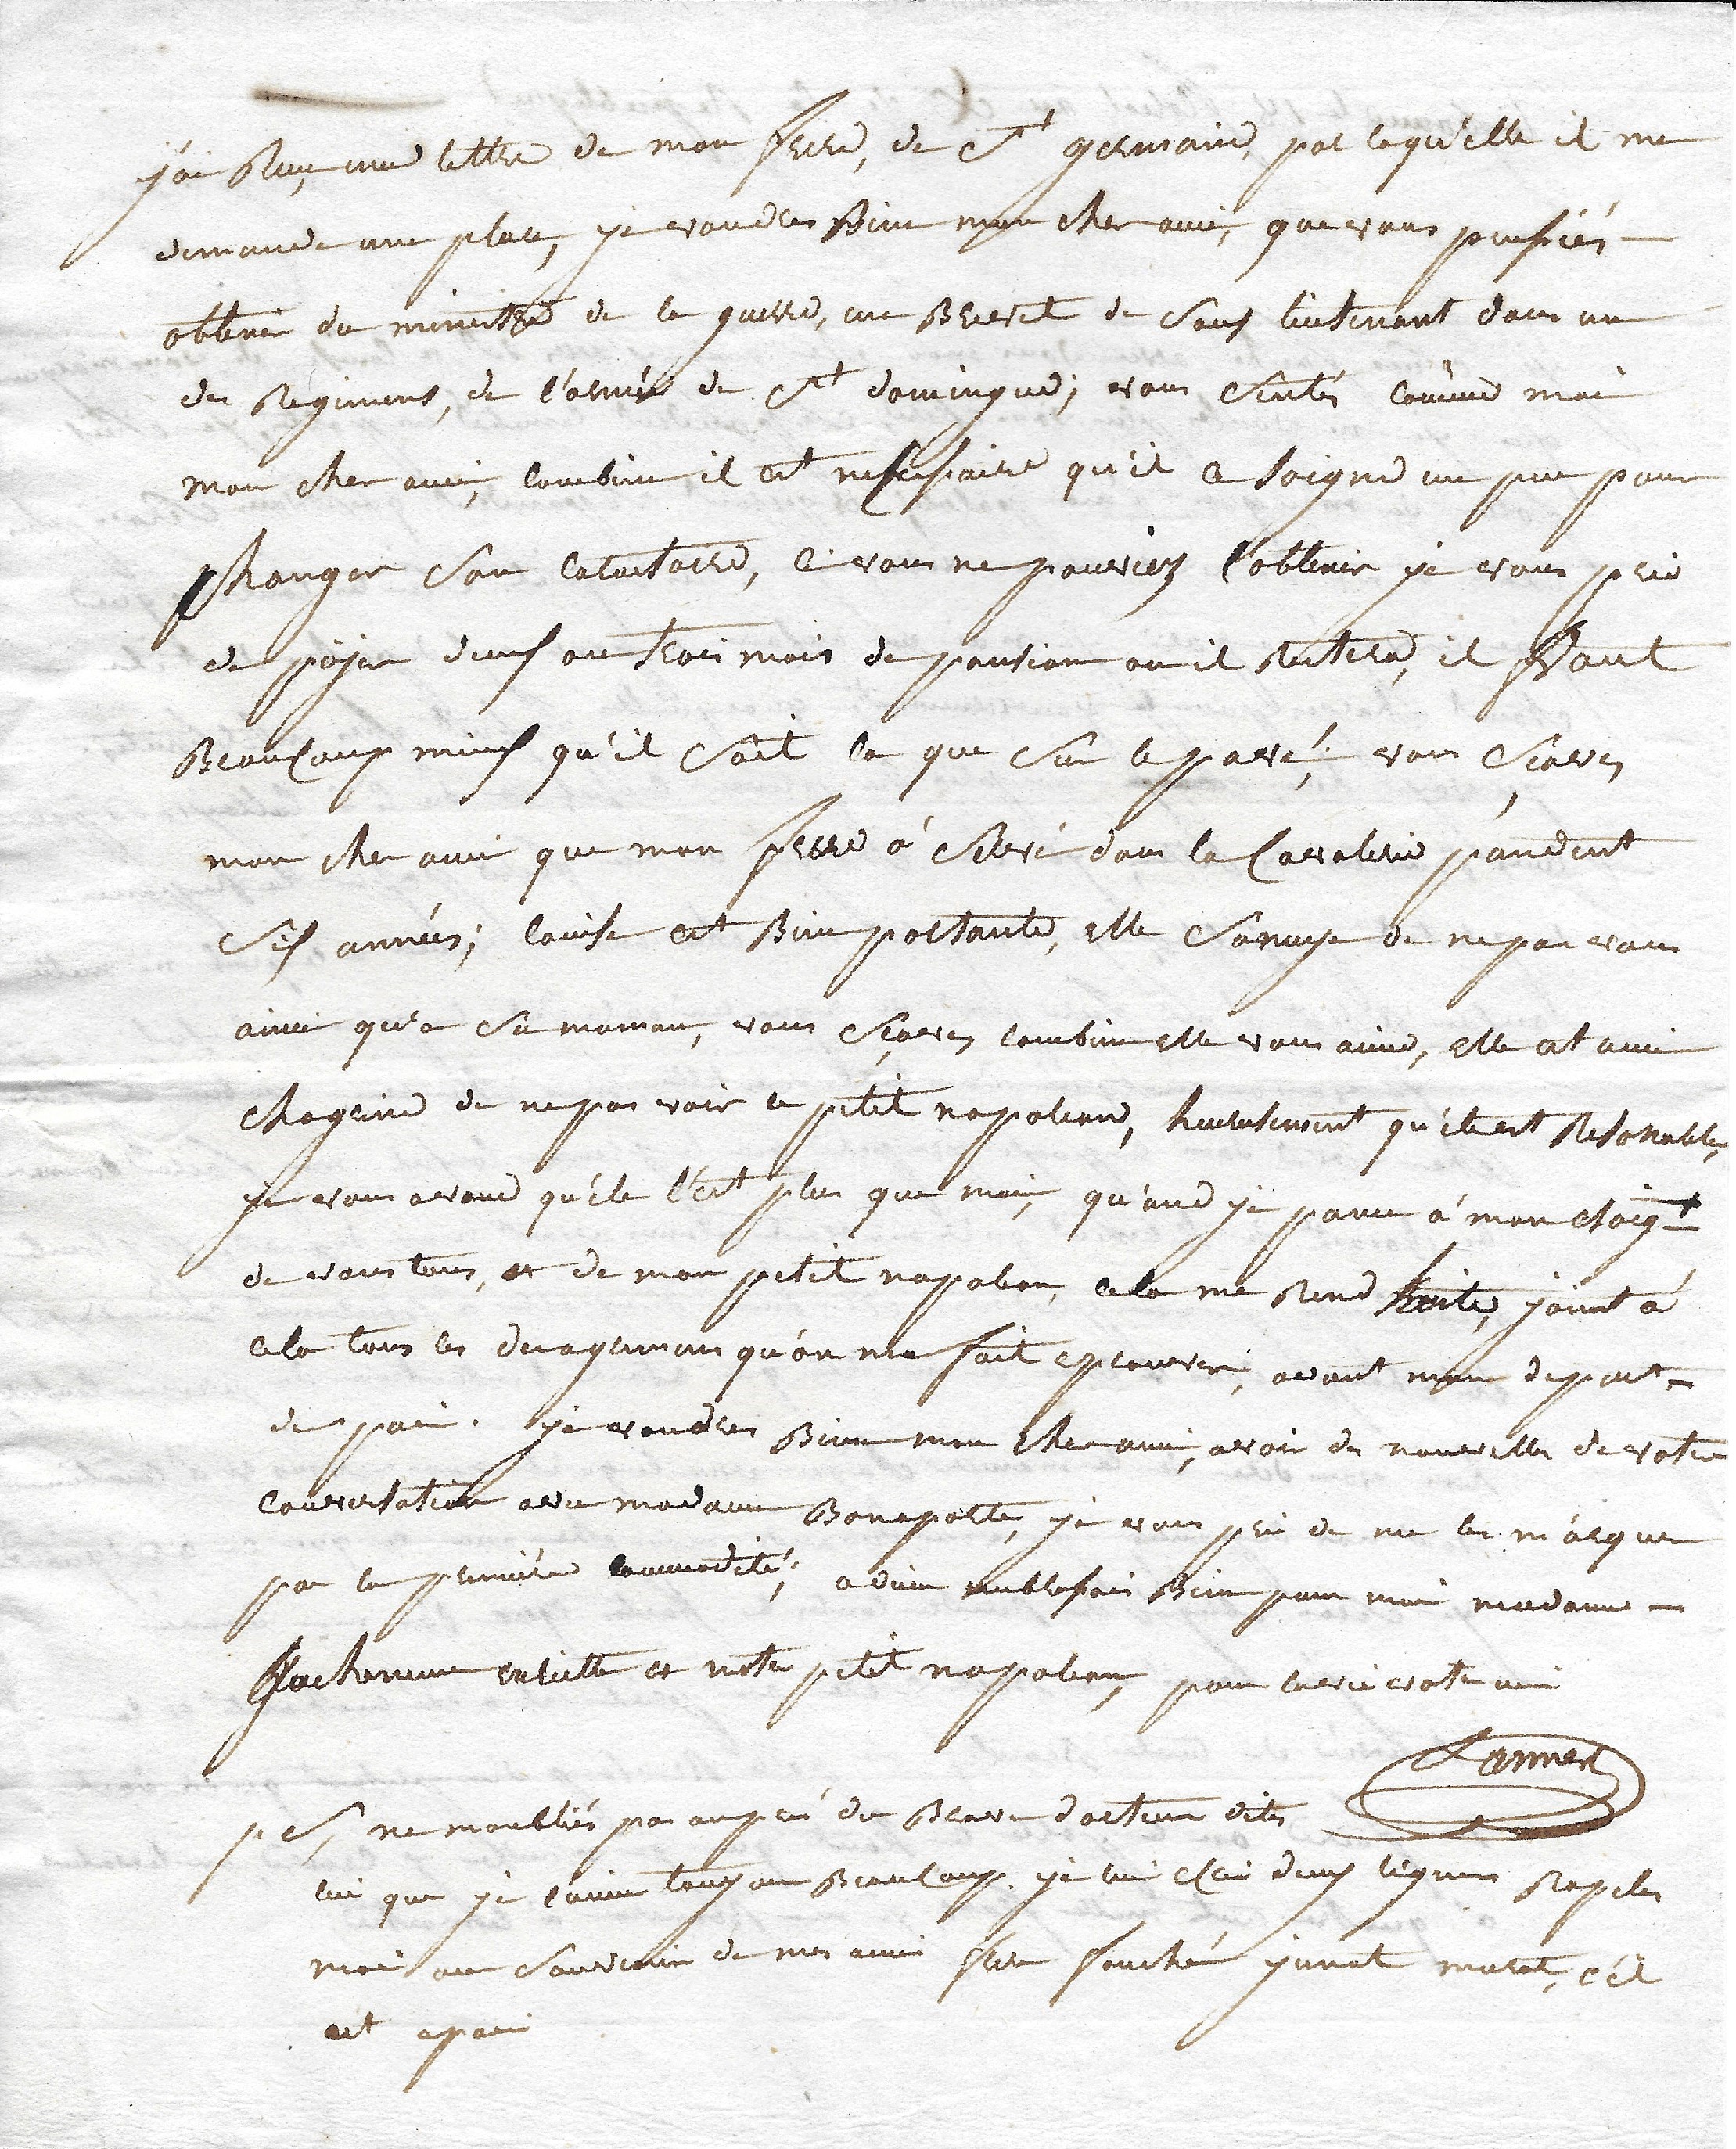 j'ai Reçu, une lettre de mon frere, de St germain, par laqu'elle il me
demande une place, je voudres Bien mon cher ami, que vous pusiés
obtenir du ministre de la guerre, un Brevet de Sous lieutenant dans un
des Regiments, de l'armée de St domingue; vous Sentés comme moi
mon cher ami, combien il est nessesaire qu'il Ce Soigne un peu pour
Changer Son Caractaire, Ci vous ne pouviez l'obtenir je vous prie
de pajer deux ou trois mois de pansion ou il Restera, il Vaut
Beaucoup mieux qu'il Soit la que Sur le pavé; vous Sçaves
mon cher ami que mon frere á Servi dans la Cavalerie pandent
Six années; Louise est Bien portante, elle S'anuye de ne pas vous
ainci qu'a Sa maman, vous Sçaves combien elle vous aime, elle est aussi
chagrine de ne pas voir le petit napoleon, heuresement qu'ele est Resonable,
je vous avoue qu'ele l'est plus que moi, qu'and je pance á mon eloig.t
de vous tous, et de mon petit napoleon, cela me Rend triste, joint á
cela tous les desagremens qu'on m'a fait eprouver, avant mon depart
de paris. je voudres Bien mon cher ami, avoir des nouvelles de votre
conversation avec madame Bonaparte, je vous prie de me les m'arquer
par la premiere commodité; adieu embrasses Bien pour moi madame
et notre petit napoleon, pour la vie votre ami
Lannes
p S, ne moubliés pas aupres du Brave docteur dites
lui que je l'aime toujours Beaucoup. je lui Ecri deux lignes Rapeles
moi au Souvenir de mes amis fouché junot murat, s'il
est a paris